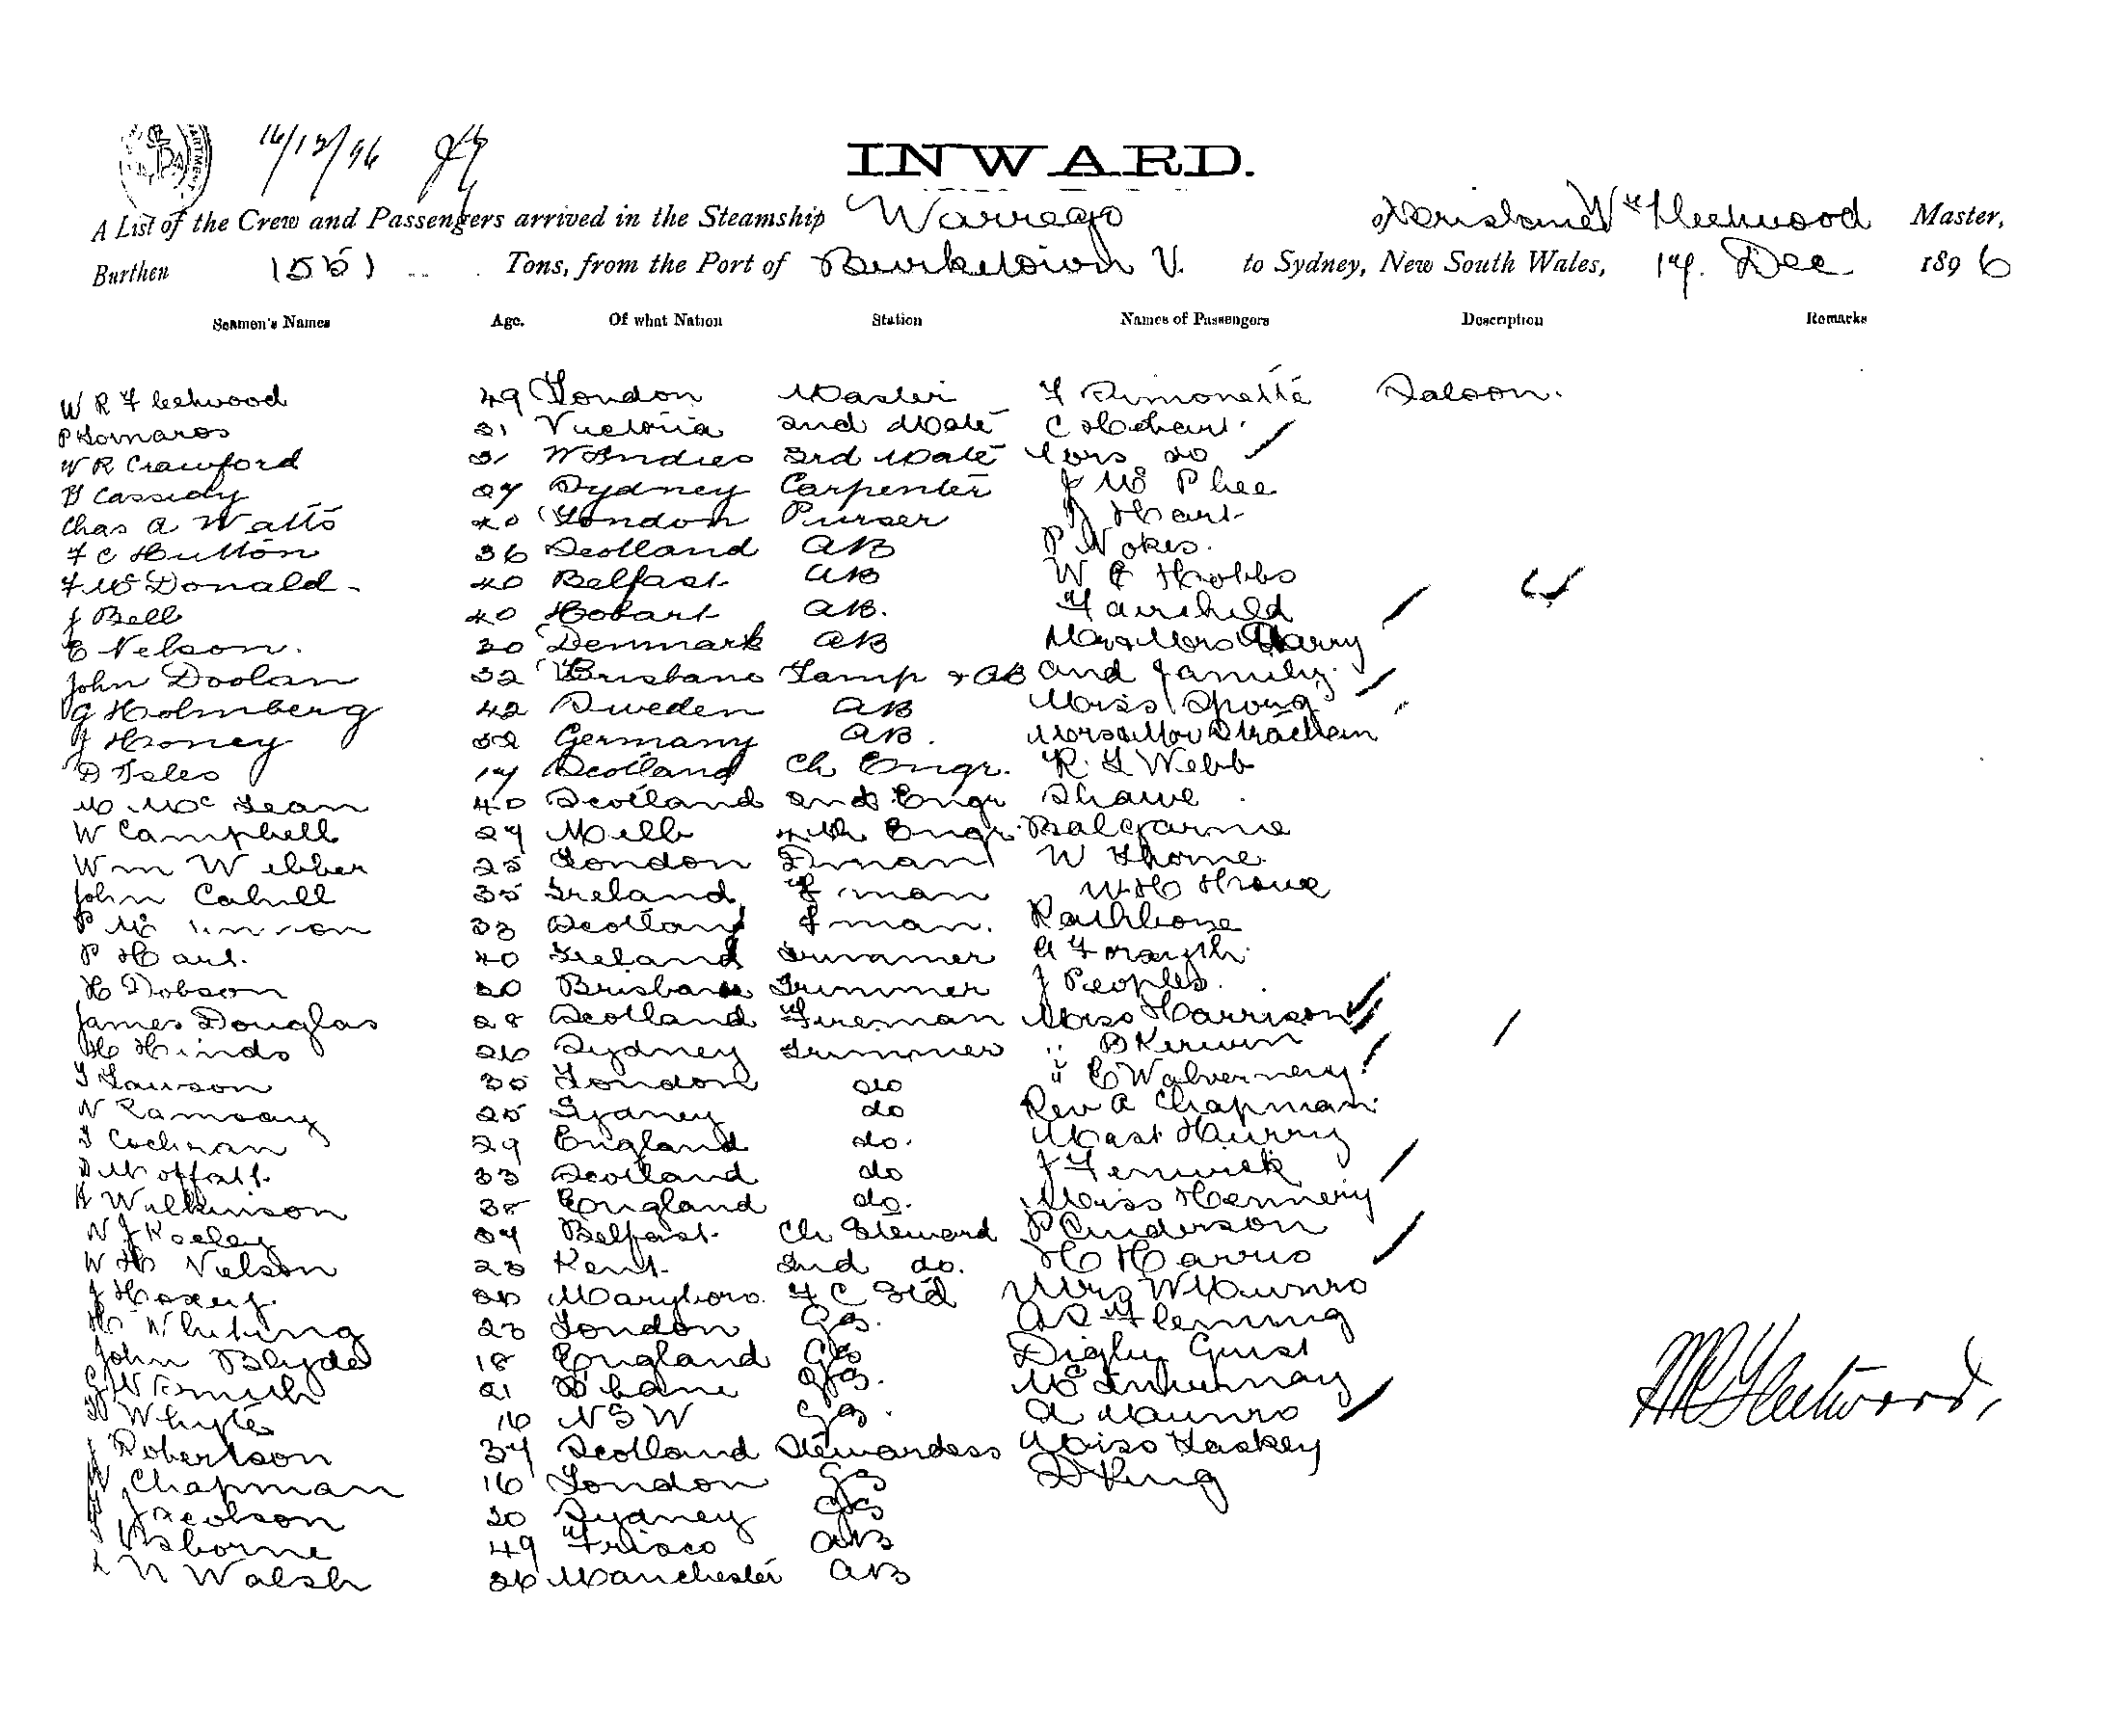 16/12/96
INWARD.
A List of the Crew and Passengers arrived in the Steamship Warrego of Brisbane Fleetwood Master,
Burthen 1551 Tons, from the Port of Burketown V. to Sydney, New South Wales, 14. Dec 1896
Seamen's Names Age. Of what Nation Station Names of Passengers Description Remarks
W R Fleetwood 49 London Master F Simonette Saloon.
31 Victoria 2nd Mate C
W R Crawford 31 W Indies 3rd Mate Mrs do
Cassidy 27 Sydney Carpenter J Mc Phee
Chas A Watts 40 London Purser Hart
F C Hutton 36 Scotland AB P Nokes.
F Mc Donald 40 Belfast AB W E Hobbs
J Bell 40 Hobart AB. Fairchild
C Nelson. 30 Denmark AB Mr & Mrs
John Doolan 32 Brisbane Lamp & AB and family.
G Holmberg 42 Sweden AB Miss Spong
J Honey 32 Germany AB. Mrs & Mr Strachan
D Isles 14 Scotland Ch Engr. R. G Webb
M McLean 40 Scotland 2nd Engr Shawe
W Campbell 24 Melb 4th Engr. Balgarnie
Wm Webber 25 London F man W Thorne
John Cahill 35 Ireland F man W. H
P Mc 33 Scotland F man. Rathbone
P Hart. 40 Ireland Trimmer A Forsyth
H Dobson 30 Brisbane Trimmer J Peoples.
James Douglas 28 Scotland Fireman Miss Harrison
H Hinds 26 Sydney Trimmer " B Kerwin
Lawson 30 London do " E
N Ramsay 25 Sydney do Rev A Chapman
Cochran 29 England do. Mast Hurry
D Moffatt. 33 Scotland do J Fenwick
A Wilkinson 38 England do. Miss Hennery
N J Keeley 34 Belfast Ch Steward P Anderson
W H Nelson 23 Kent 2nd do. H Harris
J 26 Maryboro. F C Std Mrs W Munro
H Whiting 23 London Gs. A S Fleming
John Blyde 18 England Gs Digby Gurst
G W Smith 21 B'bane Gs.
W Whyte 16 N S W Gs. A Munro
J Robertson 34 Scotland Stewardess Miss Laskey
W Chapman 16 London Gs D King
J Jacobson 20 Sydney Gs
Osborne 49 Frisco AB
N Walsh 26 Manchester AB
W R Fleetwood,